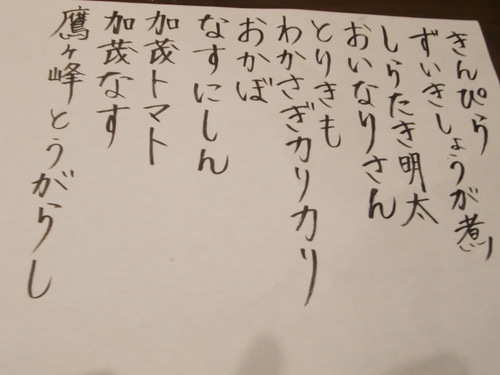 きんぴら
ずいきしょうが煮
しらたき明太
おいなりさん
とりきも
わかさぎカリカリ
おかぼ
なすにしん
加茂トマト
加茂なす
鷹ヶ峰とうがらし